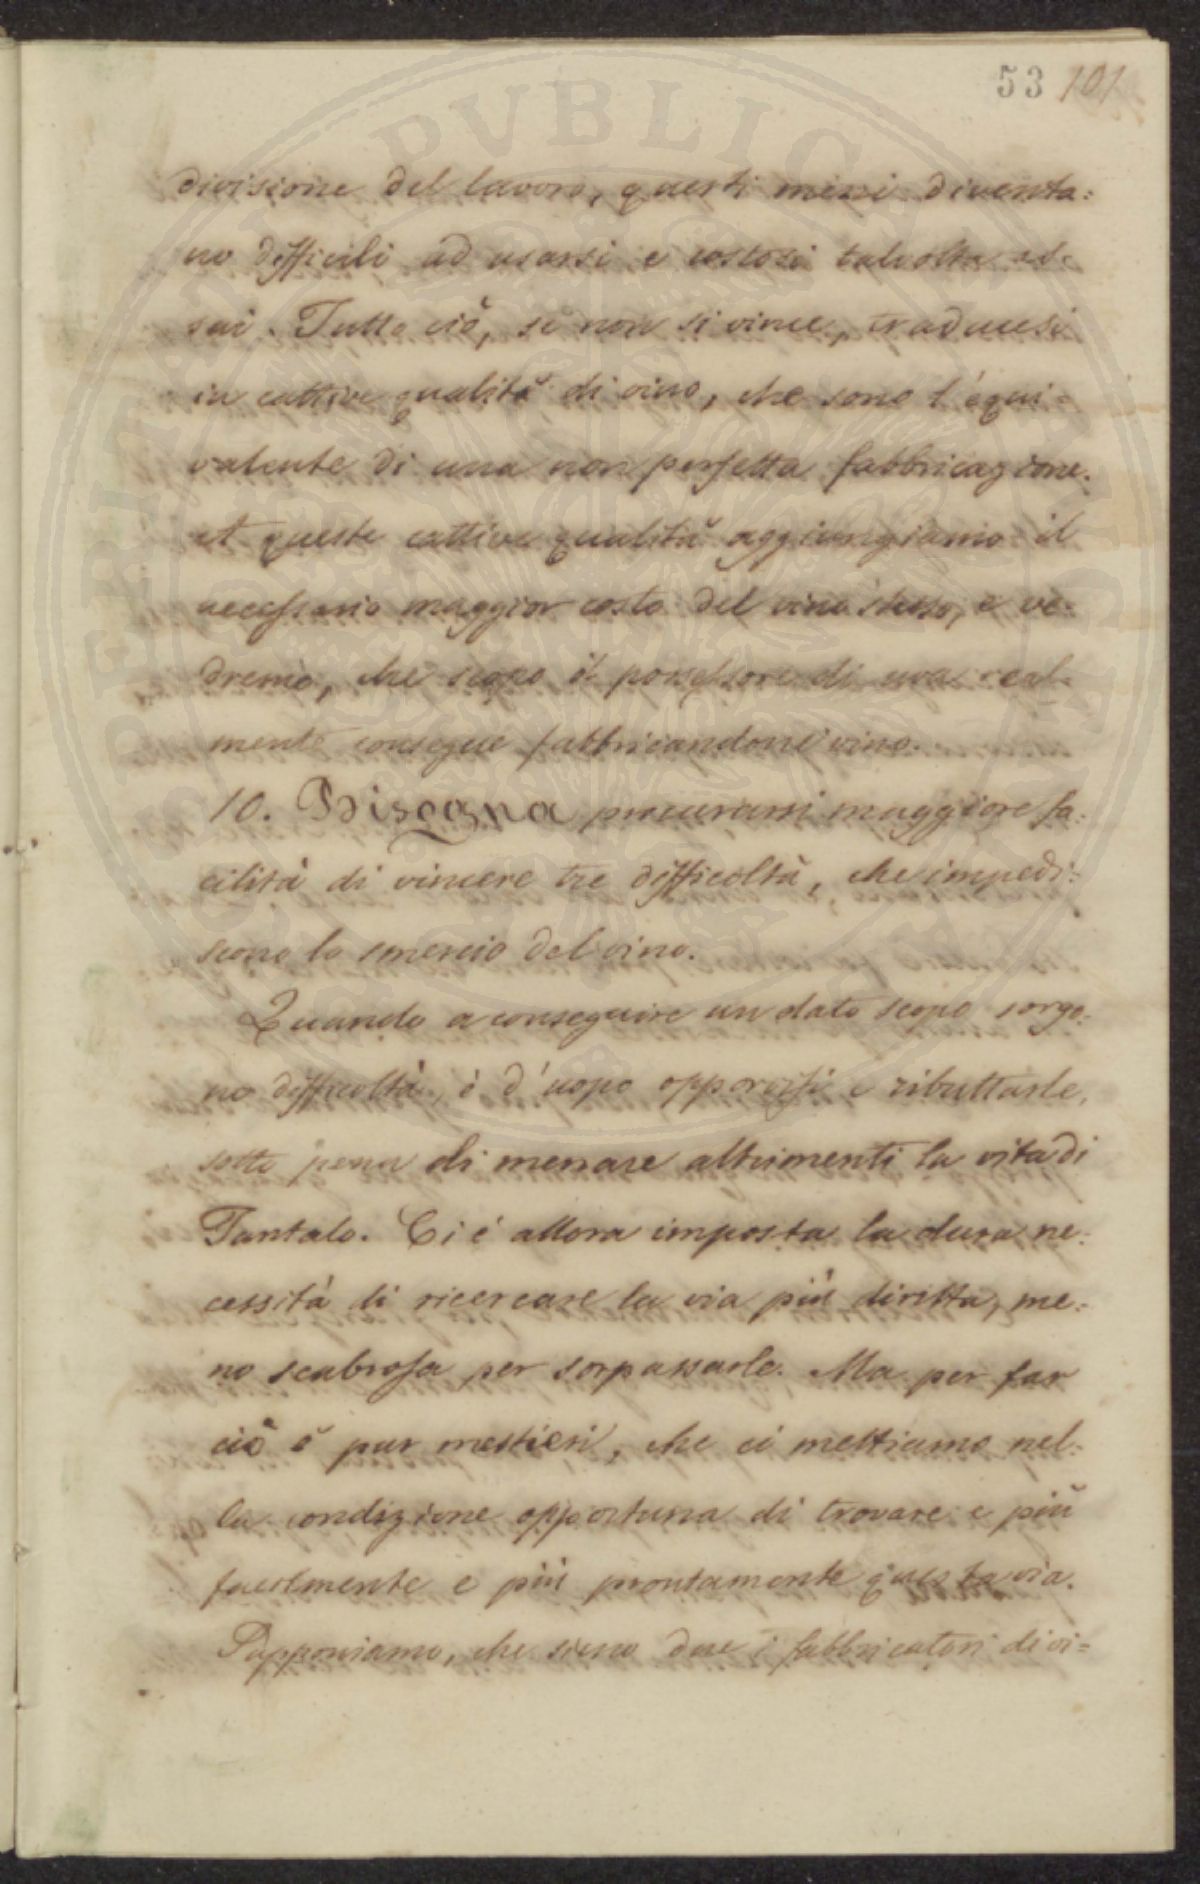 53 101
divisione del lavoro, questi mezzi diventa:
no difficili ad usarsi e costosi talvolta as:
sai. Tutto ciò, se non si vince, traducesi
in cattive qualità di vino, che sono l'equi:
valente di una non perfetta fabbricazione.
A queste cattive qualità aggiungiamo il
necessario maggior costo del vino stesso, e ve:
dremo, che scopo il possessore di uva real:
mente consegue fabbricandone vino.
10. Bisogna procurarsi maggiore fa:
cilità di vincere tre difficoltà, che impedi:
scono lo smercio del vino.
Quando a conseguire un dato scopo sorgo:
no difficoltà, è d'uopo opporvisi e ributtarle,
sotto pena di menare altrimenti la vita di
Tantalo. Ci è allora imposta la dura ne:
cessità di ricercare la via più diritta, me:
no scabrosa per sorpassarle. Ma per far
ciò è pur mestieri, che ci mettiamo nel:
la condizione opportuna di trovare e più
facilmente e più prontamente questa via.
Supponiamo, che sieno due i fabbricatori di vi=